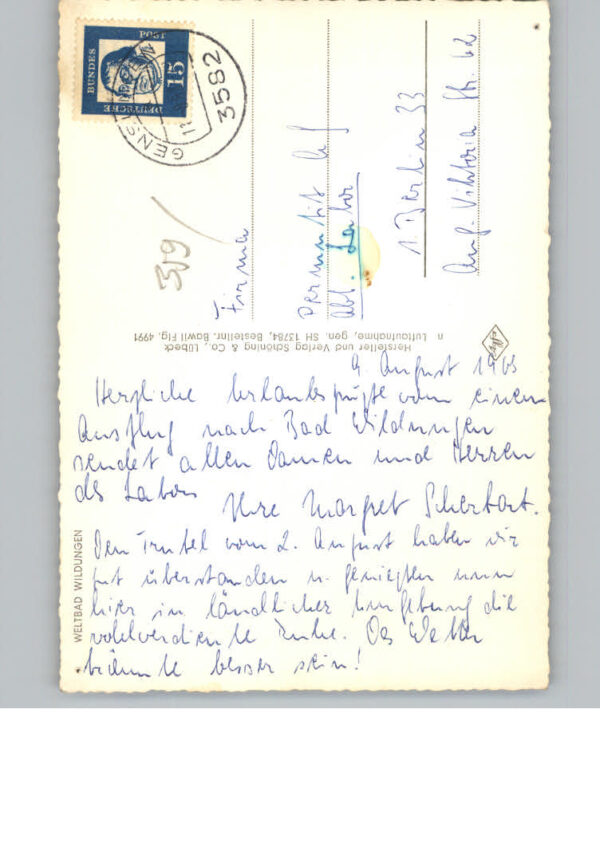 DEUTSCHE
BUNDES
POST
15
3582
309
Firma
Permutit AG
Abt. Labor
1 Berlin 33
Aug. Viktoria Str. 62
Hersteller und Verlag Schöning & Co., Lübeck
n Luftaufnahme, gen. SH 13784, Bestellnr. Bawil Flg. 4991
9. August 1963
Herzliche Urlaubsgrüße von einem
Ausflug nach Bad Wildungen
sendet allen Damen und Herren
des Labors
Ihre Margret
Den Trubel vom 2. August haben wir
gut überstanden u. genießen nun
hier in ländlicher Umgebung die
wohlverdiente Ruhe. Das Wetter
könnte besser sein!
WELTBAD WILDUNGEN